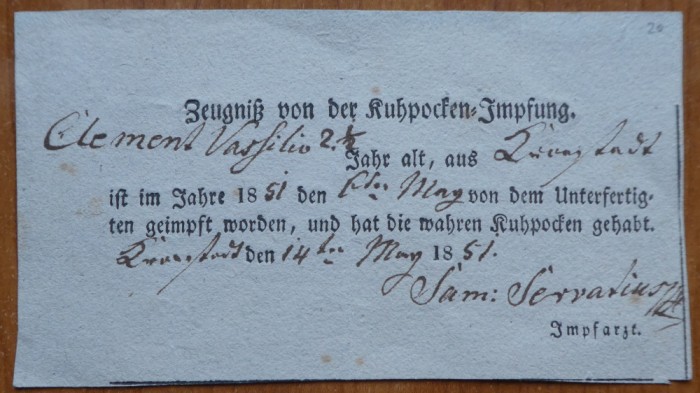 20
Zeugniß von der Kuhpocken-Impfung.
Clement Vassilio 2 ½
Jahr alt, aus Kronstadt
ist im Jahre 1851 den May von dem Unterfertig-
ten geimpft worden, und hat die wahren Kuhpocken gehabt.
Kronstadt den 14ten May 1851.
Sam: Servatius
Impfarzt.